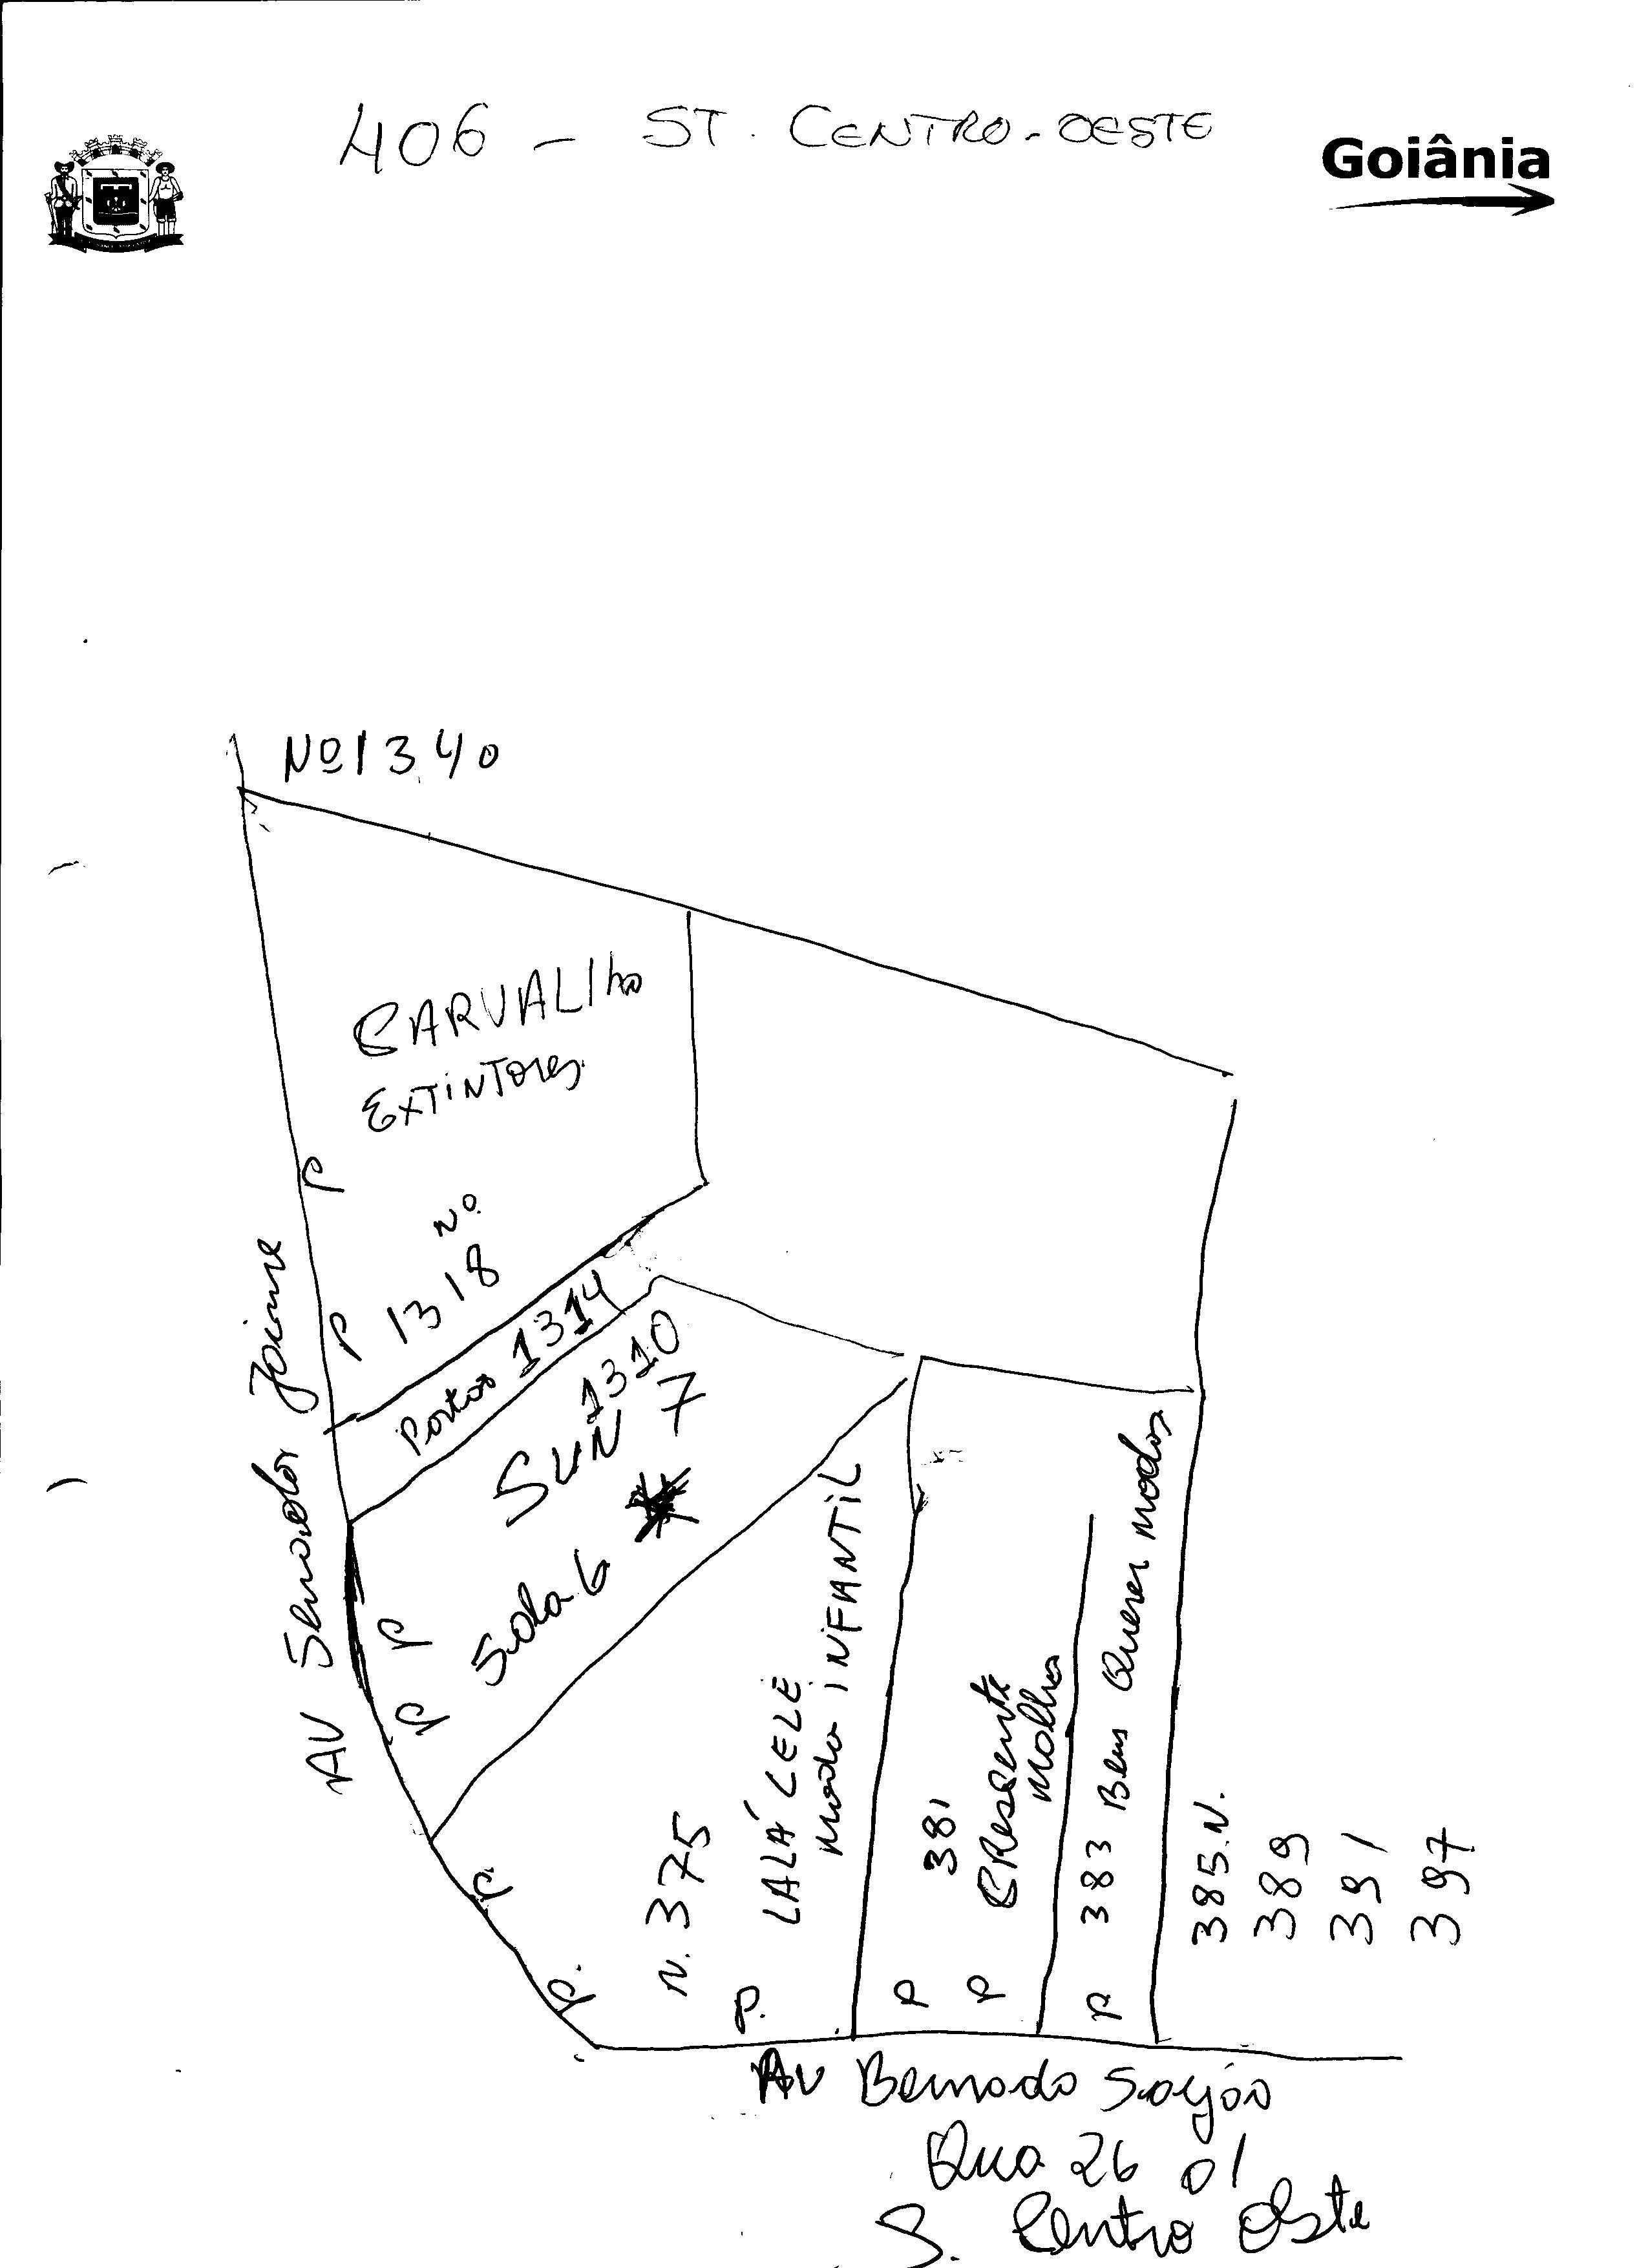 406 - ST. CENTRO-OESTE
Goiânia
Nº 1340
CARVALHO
EXTINTORES
P
Nº
1318
P
AV Senador Jaime
Portão 1314
1310
SUN 7
Sala 6
P
P
P.
P.
N. 375
P.
LALÁ LELÉ
moda INFANTIL
381
CResente
malhas
P
P
P 383 Bem Querer modas
385.N.
389
391
397
AV Bernado Sayão
Qua 26 01
S. Centro Oeste